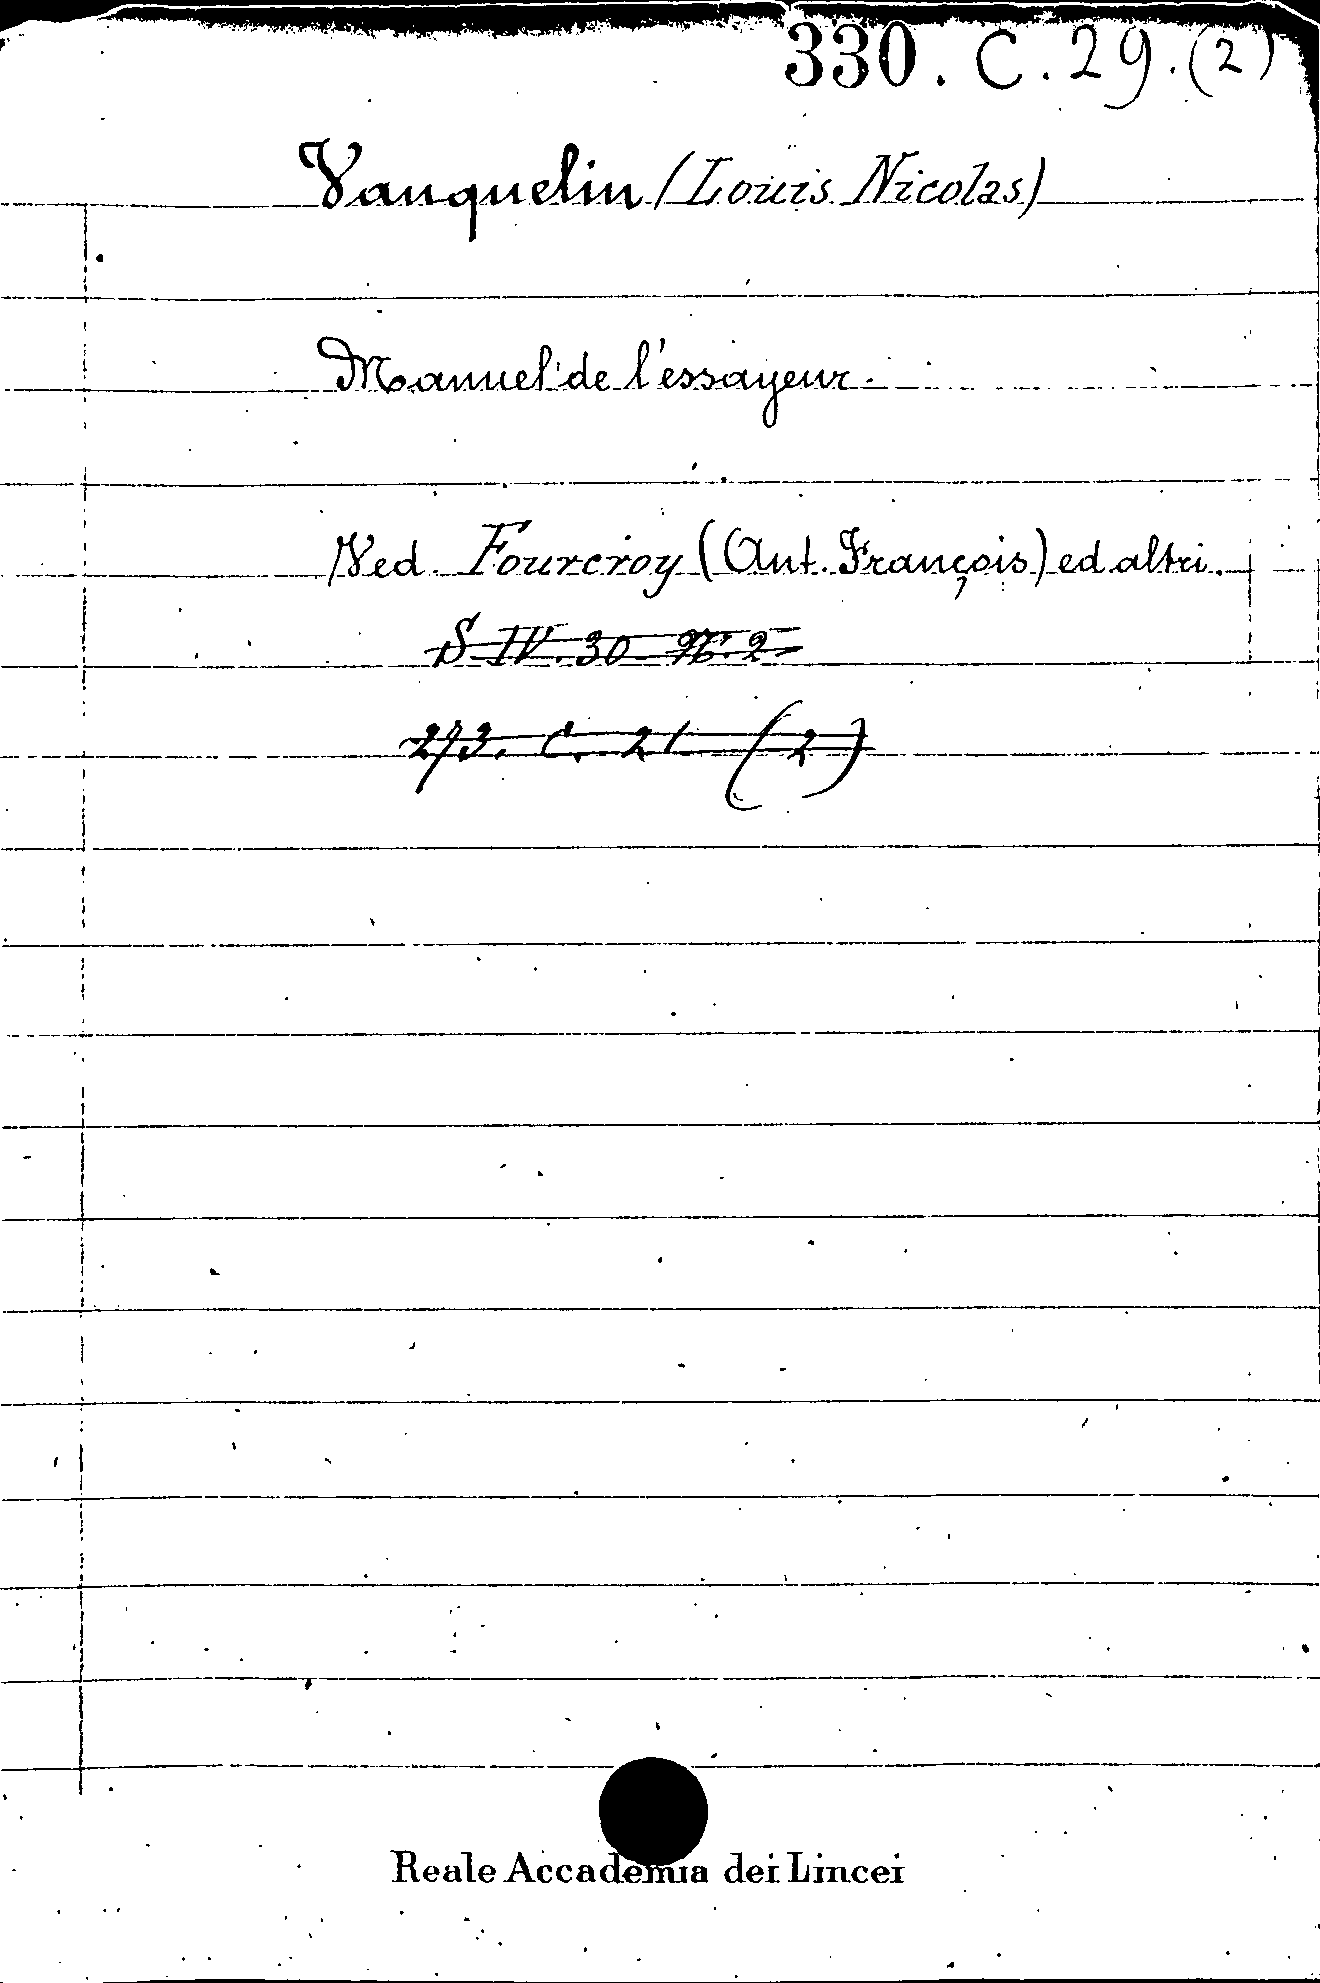 330. C. 29. (2)
Vauquelin (Louis Nicolas)
Manuel de l'essayeur.
Ved. Fourcroy (Ant. François) ed altri.
S IV. 30 N. 2
273. C. 21 (2)
Reale Accademia dei Lincei